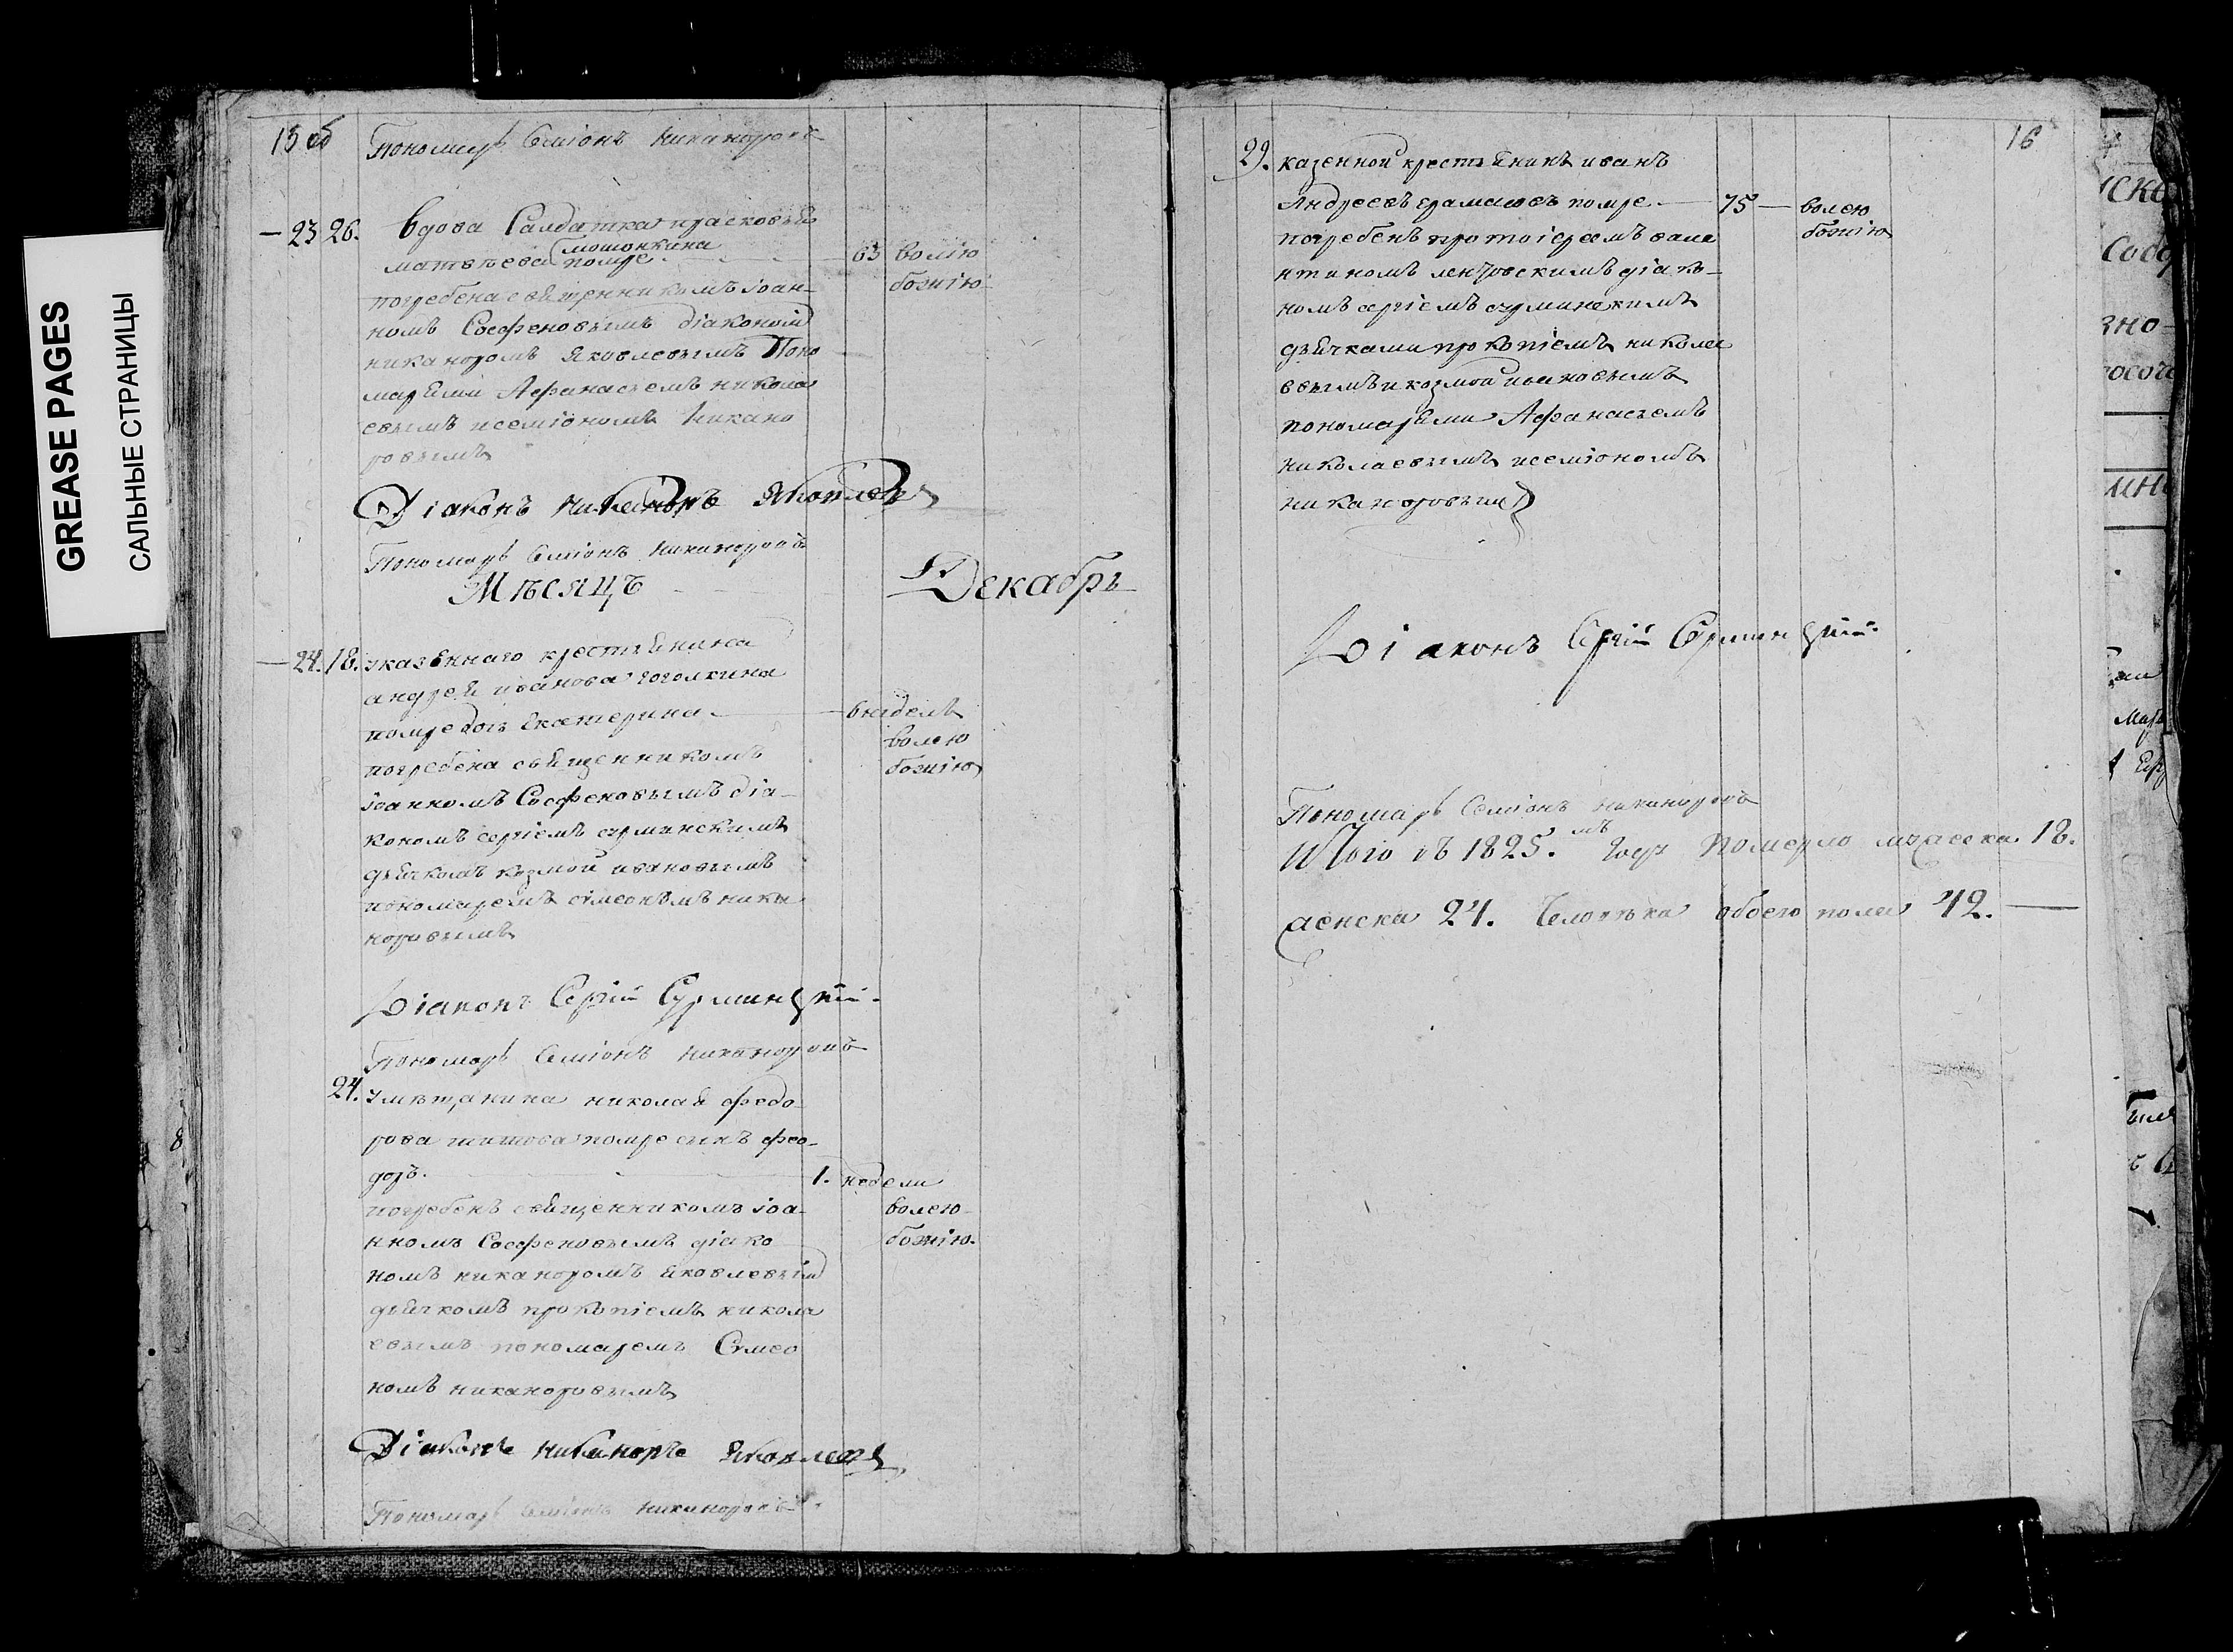 GREASE PAGES
САЛЬНЫЕ СТРАНИЦЫ
15 об
Пономарь Семіонъ Никаноровъ
23 26. Вдова Салдатка прасковья
мошонкина
матвѣева помре 63 волію
божію
погребена священникомъ іоан-
номъ Сосфеновымъ діакономъ
никаноромъ Яковлевымъ Поно
марями Афанасьемъ никола
евымъ исеміономъ Никано
ровымъ
Діаконъ Никаноръ Яковлевъ
Пономарь Семіонъ Никаноровъ
Мѣсяцъ Декабрь
24. 18. указеннаго крестьянина
андрея иванова гоголкина
помре дочь Екатерина 6 недель
волею
божію
погребена священникомъ
іоанномъ Сосфеновымъ діа-
кономъ сергіемъ сурминскимъ
дьячкомъ козмой ивановымъ
пономаремъ симеономъ ника
норовымъ
Діаконъ Сергій Сурминскій
Пономарь Семіонъ Никаноровъ
24. умѣщанина николая федо-
рова помре сынъ фео-
дорь. 1. недели
погребенъ священникомъ іоа-
волею
нномъ Сосфеновымъ діако
божію.
номъ никаноромъ Яковлевым
дьячкомъ прокопіемъ никола
евымъ пономаремъ Симео
номъ никаноровымъ
Діаконъ Никаноръ Яковлевъ
Пономарь Семіонъ Никаноровъ
16
29. казенной крестьянинъ иванъ
Андреевъ помре 75 волею
божію
погребенъ протоіереемъ вале
нтиномъ діако-
номъ сергіемъ сурминскимъ
дьячками прокопіемъ никола
евымъ и козмой ивановымъ
пономарями Афанасьемъ
николаевымъ исеміономъ
никаноровым
Діаконъ Сергій Сурминскій
Пономарь Семіонъ Никаноровъ
Итого въ 1825.мъ году Померло мужеска 18.
женска 24. Человѣка обоего пола 42.